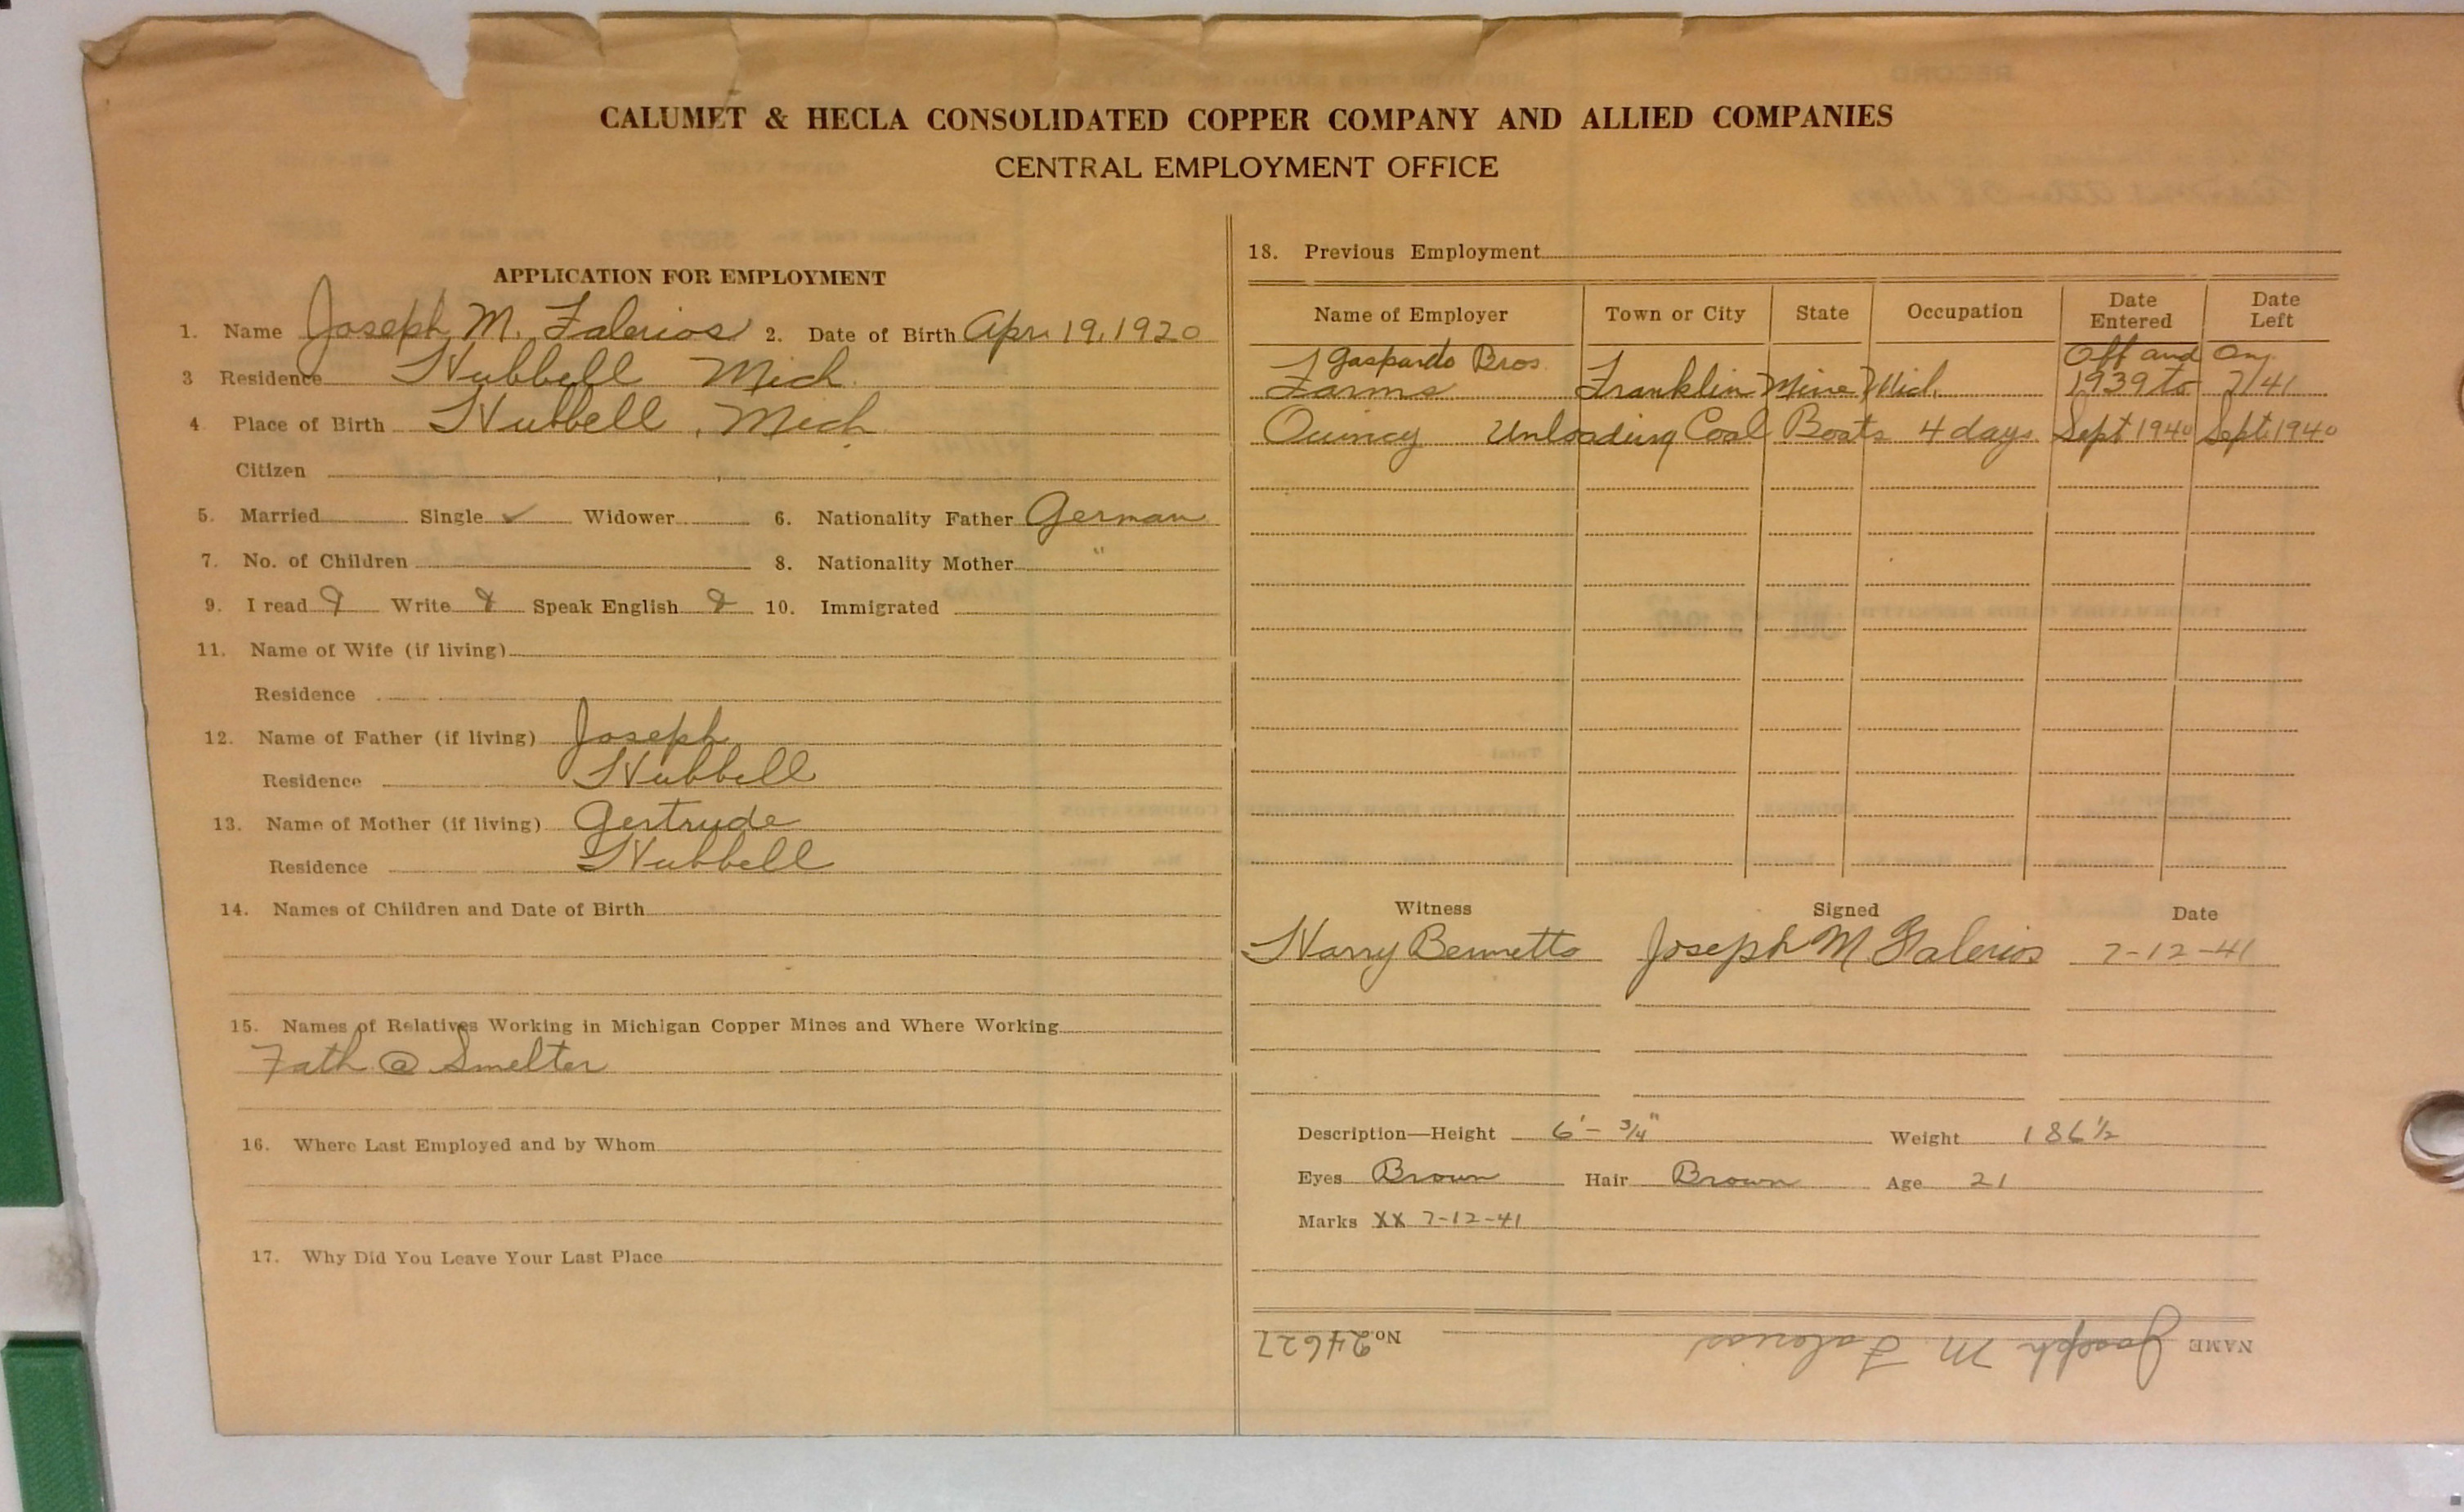 CALUMET & HECLA CONSOLIDATED COPPER COMPANY AND ALLIED COMPANIES
CENTRAL EMPLOYMENT OFFICE
APPLICATION FOR EMPLOYMENT
1. Name Joseph M. Falerios 2. Date of Birth Apr. 19, 1920
3 Residence Hubbell Mich.
4 Place of Birth Hubbell, Mich.
Citizen
5. Married Single ✓ Widower 6. Nationality Father German
7. No. of Children 8. Nationality Mother "
9. I read Write Speak English 10. Immigrated
11. Name of Wife (if living)
Residence
12. Name of Father (if living) Joseph
Residence Hubbell
13. Name of Mother (if living) Gertrude
Residence Hubbell
14. Names of Children and Date of Birth
15. Names of Relatives Working in Michigan Copper Mines and Where Working
Fath @ Smelter
16. Where Last Employed and by Whom
17. Why Did You Leave Your Last Place
18. Previous Employment
Name of Employer Town or City State Occupation Date Entered Date Left
Gaspardo Bros. Off and On
Farms Franklin Mine Mich. 1939 to 7/41
Quincy Unloading Coal Boats 4 days Sept 1940 Sept. 1940
Witness Signed Date
Harry Bennetts Joseph M. Falerios 7-12-41
Description—Height 6'- 3/4" Weight 186 1/2
Eyes Brown Hair Brown Age 21
Marks XX 7-12-41
NAME Joseph M. Falerios No. 24627